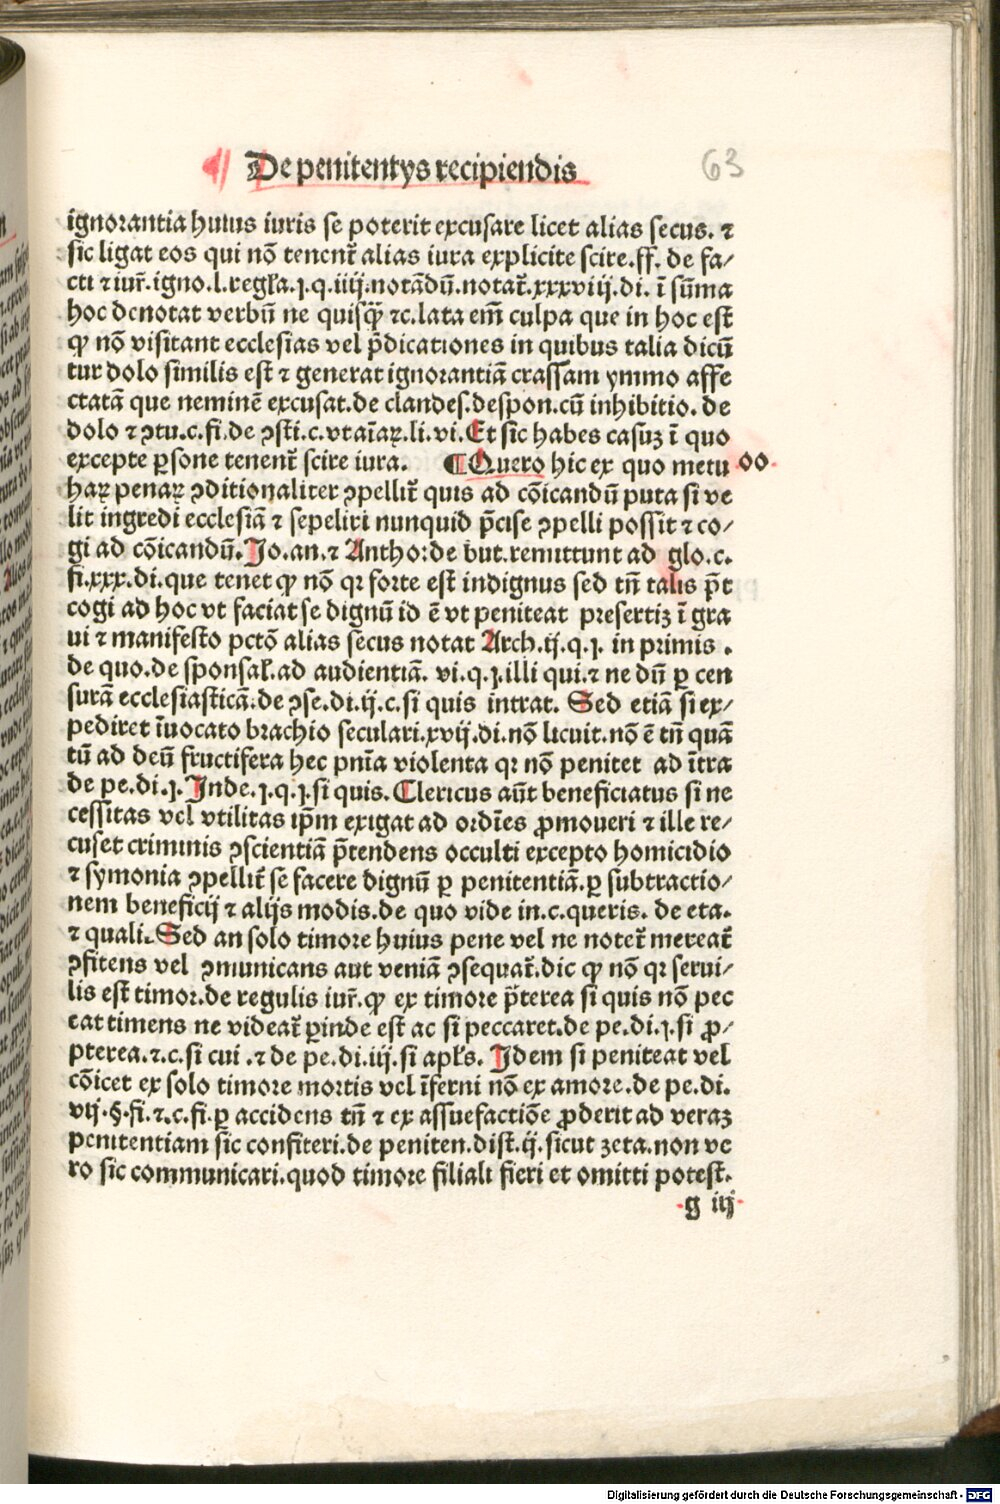 De penitentys recipiendis
63
ignorantia huius iuris se poterit excusare licet alias secus. ⁊
sic ligat eos qui nō tenent᷑ alias iura explicite scire.ff. de fa/
cti ⁊ iur̄.igno.l.regl̵a.ȷ.q.iiij.notādū.notat᷑.xxxviij.di. ī sūma
hoc denotat verbū ne quisꝙ̄ ⁊c.lata em̄ culpa que in hoc est
ꝙ nō visitant ecclesias vel p̄dicationes in quibus talia dicū
tur dolo similis est ⁊ generat ignorantiā crassam ymmo affe
ctatā que neminē excusat.de clandes.despon.cū inhibitio. de
dolo ⁊ ꝯtu.c.fi.de ꝯsti.c.vt aīaꝝ.li.vi.Et sic habes casuꝫ ī quo
excepte ꝑsone tenent᷑ scire iura. ¶Quero hic ex quo metu
oo
haꝝ penaꝝ ꝯditionaliter ꝯpellit᷑ quis ad cōicandū puta si ve
lit ingredi ecclesiā ⁊ sepeliri nunquid p̄cise ꝯpelli possit ⁊ co/
gi ad cōicandū.Jo.an.⁊ Anthor de but.remittunt ad glo.c.
fi.xxx.di.que tenet ꝙ nō qꝛ forte est indignus sed tn̄ talis p̄t
cogi ad hoc vt faciat se dignū id ē vt peniteat presertiꝫ ī gra
ui ⁊ manifesto pctō alias secus notat Arch.ij.q.ȷ. in primis .
de quo.de sponsal̵.ad audientiā. vi.q.ȷ.illi qui.⁊ ne dū ꝑ cen
surā ecclesiasticā.de ꝯse.di.ij.c.si quis intrat. Sed etiā si ex/
pediret īuocato brachio seculari.xvij.di.nō licuit.nō ē tn̄ quā
tū ad deū fructifera hec pnīa violenta qꝛ nō penitet ad ītra
de pe.di.ȷ.Inde.ȷ.q.ȷ.si quis.Clericus aūt beneficiatus si ne
cessitas vel vtilitas ip̄m exigat ad ordīes ꝓmoueri ⁊ ille re/
cuset criminis ꝯscientiā p̄tendens occulti excepto homicidio
⁊ symonia ꝯpellit᷑ se facere dignū ꝑ penitentiā.ꝑ subtractio/
nem beneficij ⁊ alijs modis.de quo vide in.c.queris. de eta.
⁊ quali.Sed an solo timore huius pene vel ne notet᷑ mereat᷑
ꝯfitens vel ꝯmunicans aut veniā ꝯsequat᷑.dic ꝙ nō qꝛ serui/
lis est timor.de regulis iur̄.ꝙ ex timore p̄terea si quis nō pec
cat timens ne videat᷑ ꝑinde est ac si peccaret.de pe.di.ȷ.si ꝓ/
pterea.⁊.c.si cui .⁊ de pe.di.iij.si apl̵s. Idem si peniteat vel
cōicet ex solo timore mortis vel īferni nō ex amore.de pe.di.
vij.§.fi.⁊.c.fi.ꝑ accidens tn̄ ⁊ ex assuefactiōe ꝓderit ad veraꝫ
penitentiam sic confiteri.de peniten.dist.ij.sicut zeta.non ve
ro sic communicari.quod timore filiali fieri et omitti potest.
g iij
Digitalisierung gefördert durch die Deutsche Forschungsgemeinschaft - DFG